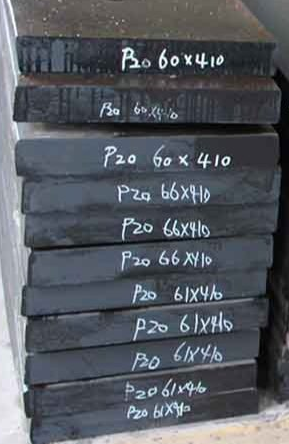 P20 60×410
P20 60×410
P20 60×410
P20 66×410
P20 66×410
P20 66×410
P20 61×410
P20 61×410
P20 61×410
P20 61×410
P20 61×410